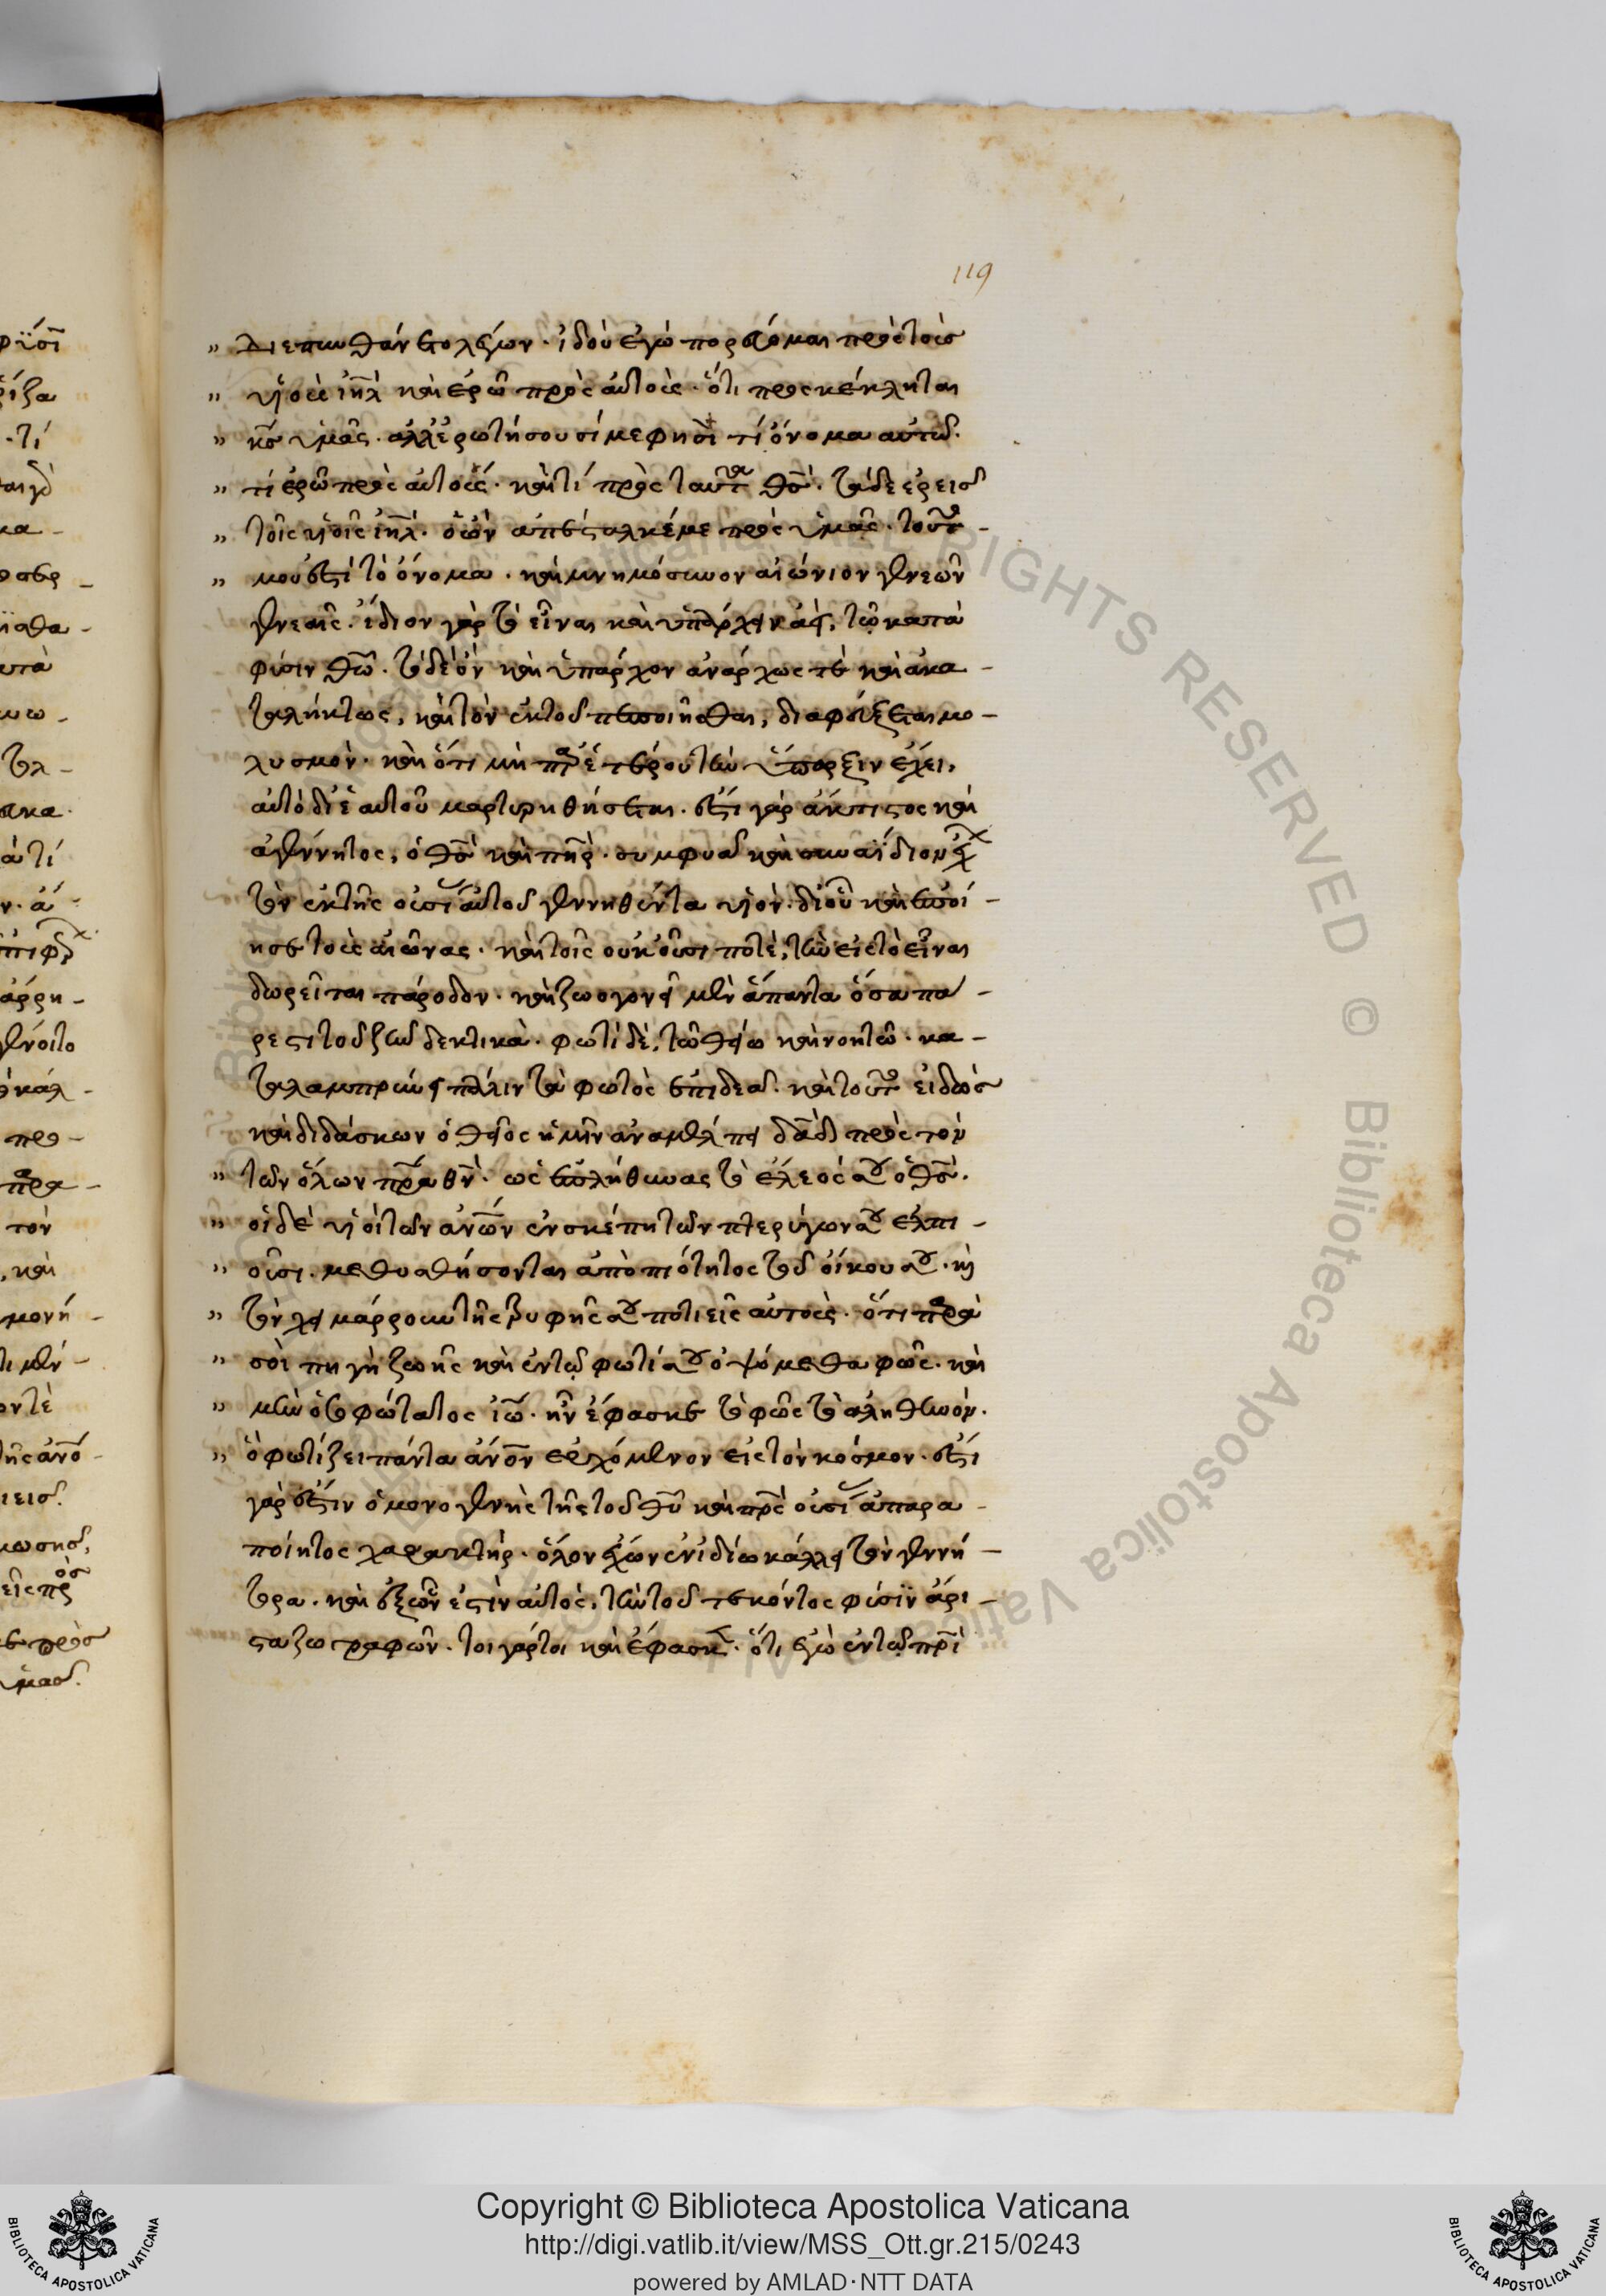 119
" διεπυνθάνετο λέγων · ἰδοὺ ἐγὼ πορεύομαι πρὸς τοὺς
" υἱοὺς ἰη̅λ̅ καὶ ἐρῶ πρὸς αὐτοὺς · ὅτι προσκέκληται
" κ̅ς̅ ὑμᾶς · ἀλλ' ἐρωτήσουσί με φησὶ τί ὄνομα αὐτῷ ·
" τί ἐρῶ πρὸς αὐτούς · καὶ τί πρὸς ταῦτα θ̅ς̅ · τάδε ἐρεῖς
" τοῖς υἱοῖς ἰη̅λ̅ · ὁ ὢν ἀπέσταλκέ με πρὸς ὑμᾶς · τοῦτο -
" μου ἐστὶ τὸ ὄνομα · καὶ μνημόσυνον αἰώνιον γενεῶν
γενεαῖς · ἴδιον γὰρ τὸ εἶναι καὶ ὑπάρχειν ἀεί, τῷ κατὰ
φύσιν θ̅ω̅ · τὸ δὲ ὂν καὶ ὑπάρχον ἀνάρχως τὲ καὶ ἀκα -
ταλήκτως, καὶ τὸν ἐκ τοῦ πεποιῆσθαι, διαφεύξεται μο -
λυσμόν · καὶ ὅτι μὴ παρ' ἑτέρου τὴν ὕπαρξιν ἔχει,
αὐτὸ δι' ἑαυτοῦ μαρτυρηθήσεται · ἐστὶ γὰρ ἄκτιστος καὶ
ἀγέννητος, ὁ θ̅ς̅ καὶ π̅η̅ρ̅ · συμφυᾶ καὶ συναΐδιον ἔχων
τὸν ἐκ τῆς οὐσίας αὐτοῦ γεννηθέντα υἱόν · δι' οὗ καὶ ἐποί -
ησε τοὺς αἰῶνας · καὶ τοῖς οὐκ οὖσι ποτὲ, τὴν εἰς τὸ εἶναι
δωρεῖται πάροδον · καὶ ζωογονεῖ μὲν ἅπαντα ὅσα πα -
ρεστι τοῦ ζῆν δεκτικά · φωτὶ δὲ, τῷ θείῳ καὶ νοητῷ · κα -
ταλαμπρύνει πάλιν τὰ φωτὸς ἐπιδεᾶ · καὶ τοῦτο εἰδὼς
καὶ διδάσκων ὁ θεῖος ἡμῖν ἀναμέλπει δα̅δ̅ πρὸς τὸν
" τῶν ὅλων π̅ρ̅α̅ θ̅ν̅ · ὡς ἐπλήθυνας τὸ ἔλεός σου ὁ θ̅ς̅ ·
" οἱ δὲ υἱοὶ τῶν ἀν̅ω̅ν̅ ἐν σκέπῃ τῶν πτερύγων σου ἐλπι -
" οῦσι · μεθυσθήσονται ἀπὸ πιότητος τοῦ οἴκου σου · καὶ
" τὸν χειμάρρουν τῆς τρυφῆς σου ποτιεῖς αὐτούς · ὅτι παρὰ
" σοὶ πηγὴ ζωῆς καὶ ἐν τῷ φωτί σου ὀψόμεθα φῶς · καὶ
" μὴν ὁ σοφώτατος ἰω̅ · ἦν ἔφασκε τὸ φῶς τὸ ἀληθινόν ·
" ὃ φωτίζει πάντα ἄν̅ο̅ν̅ ἐρχόμενον εἰς τὸν κόσμον · ἐστὶ
γάρ ἐστιν ὁ μονογενὴς τῆς τοῦ θ̅υ̅ καὶ π̅ρ̅ς̅ οὐσίας ἀπαρα -
ποίητος χαρακτήρ · ὅλον ἔχων ἐν ἰδίῳ κάλλει τὸν γεννή -
τορα · καὶ ἐξ ὧν ἐστὶν αὐτὸς, τὴν τοῦ τεκόντος φύσϊν ἄρι -
στα ζωγραφῶν · τοιγάρτοι καὶ ἔφασκε · ὅτι ἐγὼ ἐν τῷ π̅ρ̅ι̅
Copyright © Biblioteca Apostolica Vaticana
http://digi.vatlib.it/view/MSS_Ott.gr.215/0243
powered by AMLAD·NTT DATA
BIBLIOTECA APOSTOLICA VATICANA
BIBLIOTECA APOSTOLICA VATICANA